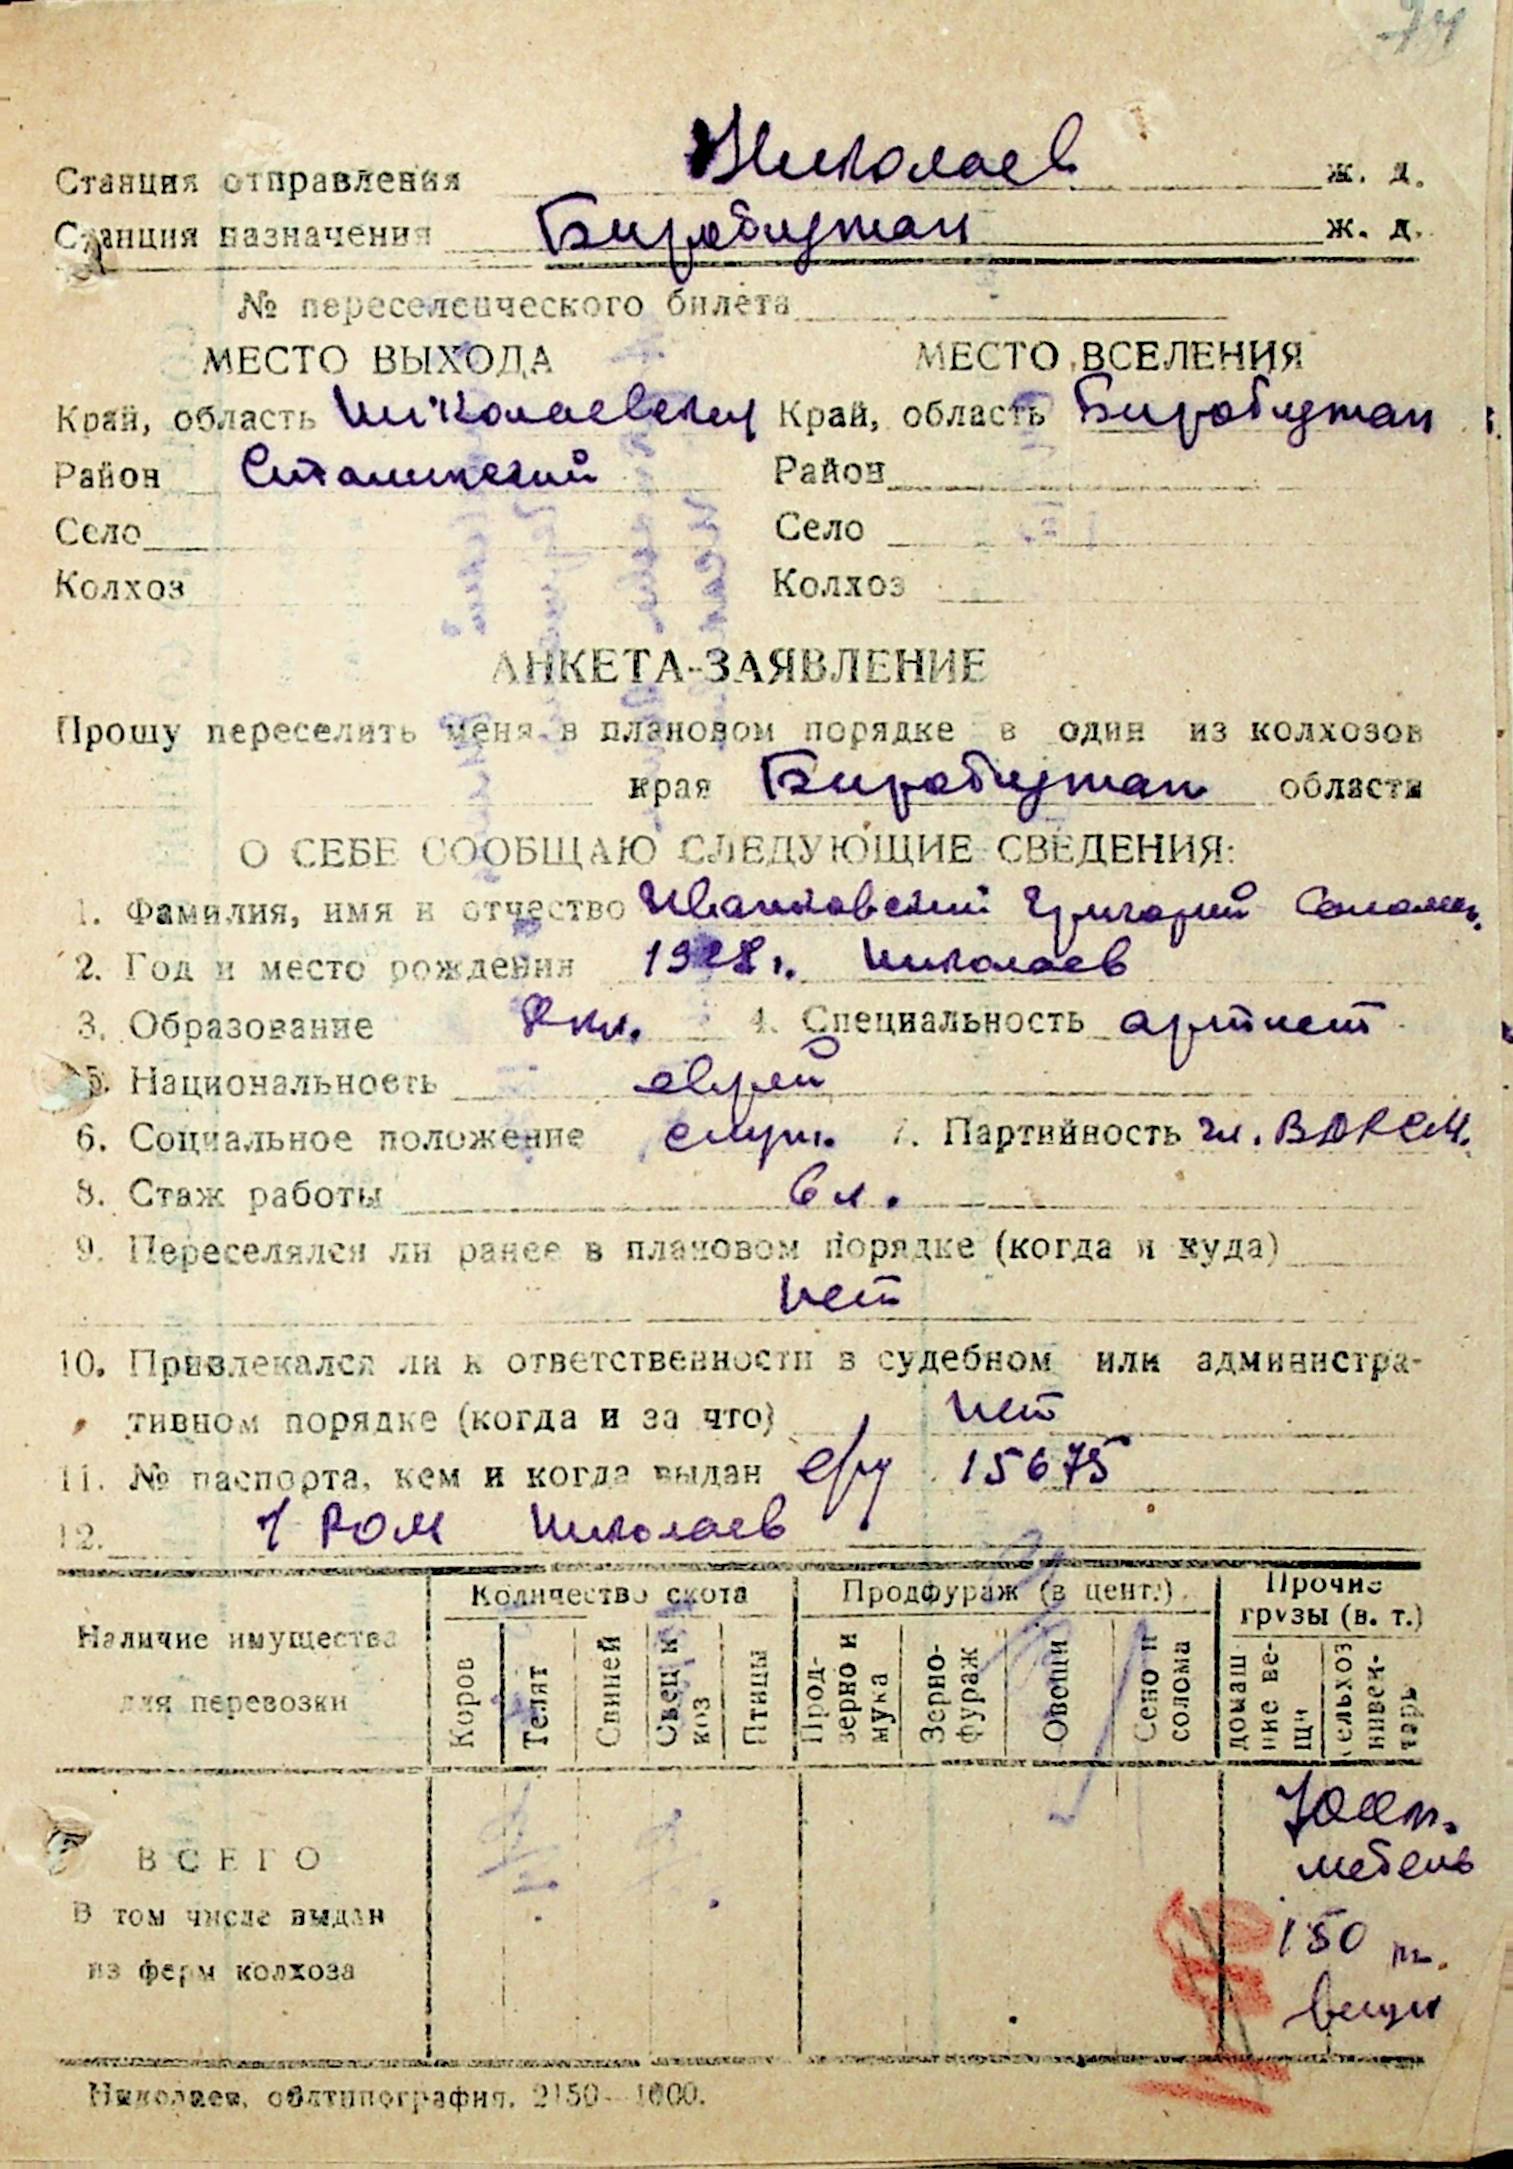 Станция отправления Николаев ж. д.
Станция назначения Биробиджан ж. д.
№ переселенческого билета
МЕСТО ВЫХОДА МЕСТО ВСЕЛЕНИЯ
Край, область Николаевская Край, область Биробиджан
Район Сталинский Район
Село Село
Колхоз Колхоз
АНКЕТА-ЗАЯВЛЕНИЕ
Прошу переселить меня в плановом порядке в один из колхозов
края Биробиджан области
О СЕБЕ СООБЩАЮ СЛЕДУЮЩИЕ СВЕДЕНИЯ:
1. Фамилия, имя и отчество Ивановский Григорий Солом.
2. Год и место рождения 1928 г. Николаев
3. Образование 8 кл. 4. Специальность артист
5. Национальность еврей
6. Социальное положение служ. 7. Партийность чл. ВЛКСМ.
8. Стаж работы 6 л.
9. Переселялся ли ранее в плановом порядке (когда и куда)
нет
10. Привлекался ли к ответственности в судебном или администра-
тивном порядке (когда и за что) нет
11. № паспорта, кем и когда выдан 15675
12. 1 РОМ Николаев
Количество скота Продфураж (в цент.) Прочие грузы (в. т.)
Наличие имущества для перевозки Коров Телят Свиней Овец и коз Птицы Прод-зерно и мука Зерно-фураж Овощи Сено и солома домаш ние ве-щи сельхоз инвен-тарь
ВСЕГО мебель
В том числе выдан 150
из ферм колхоза вещи
Николаев, облтипография. 2150—1000.